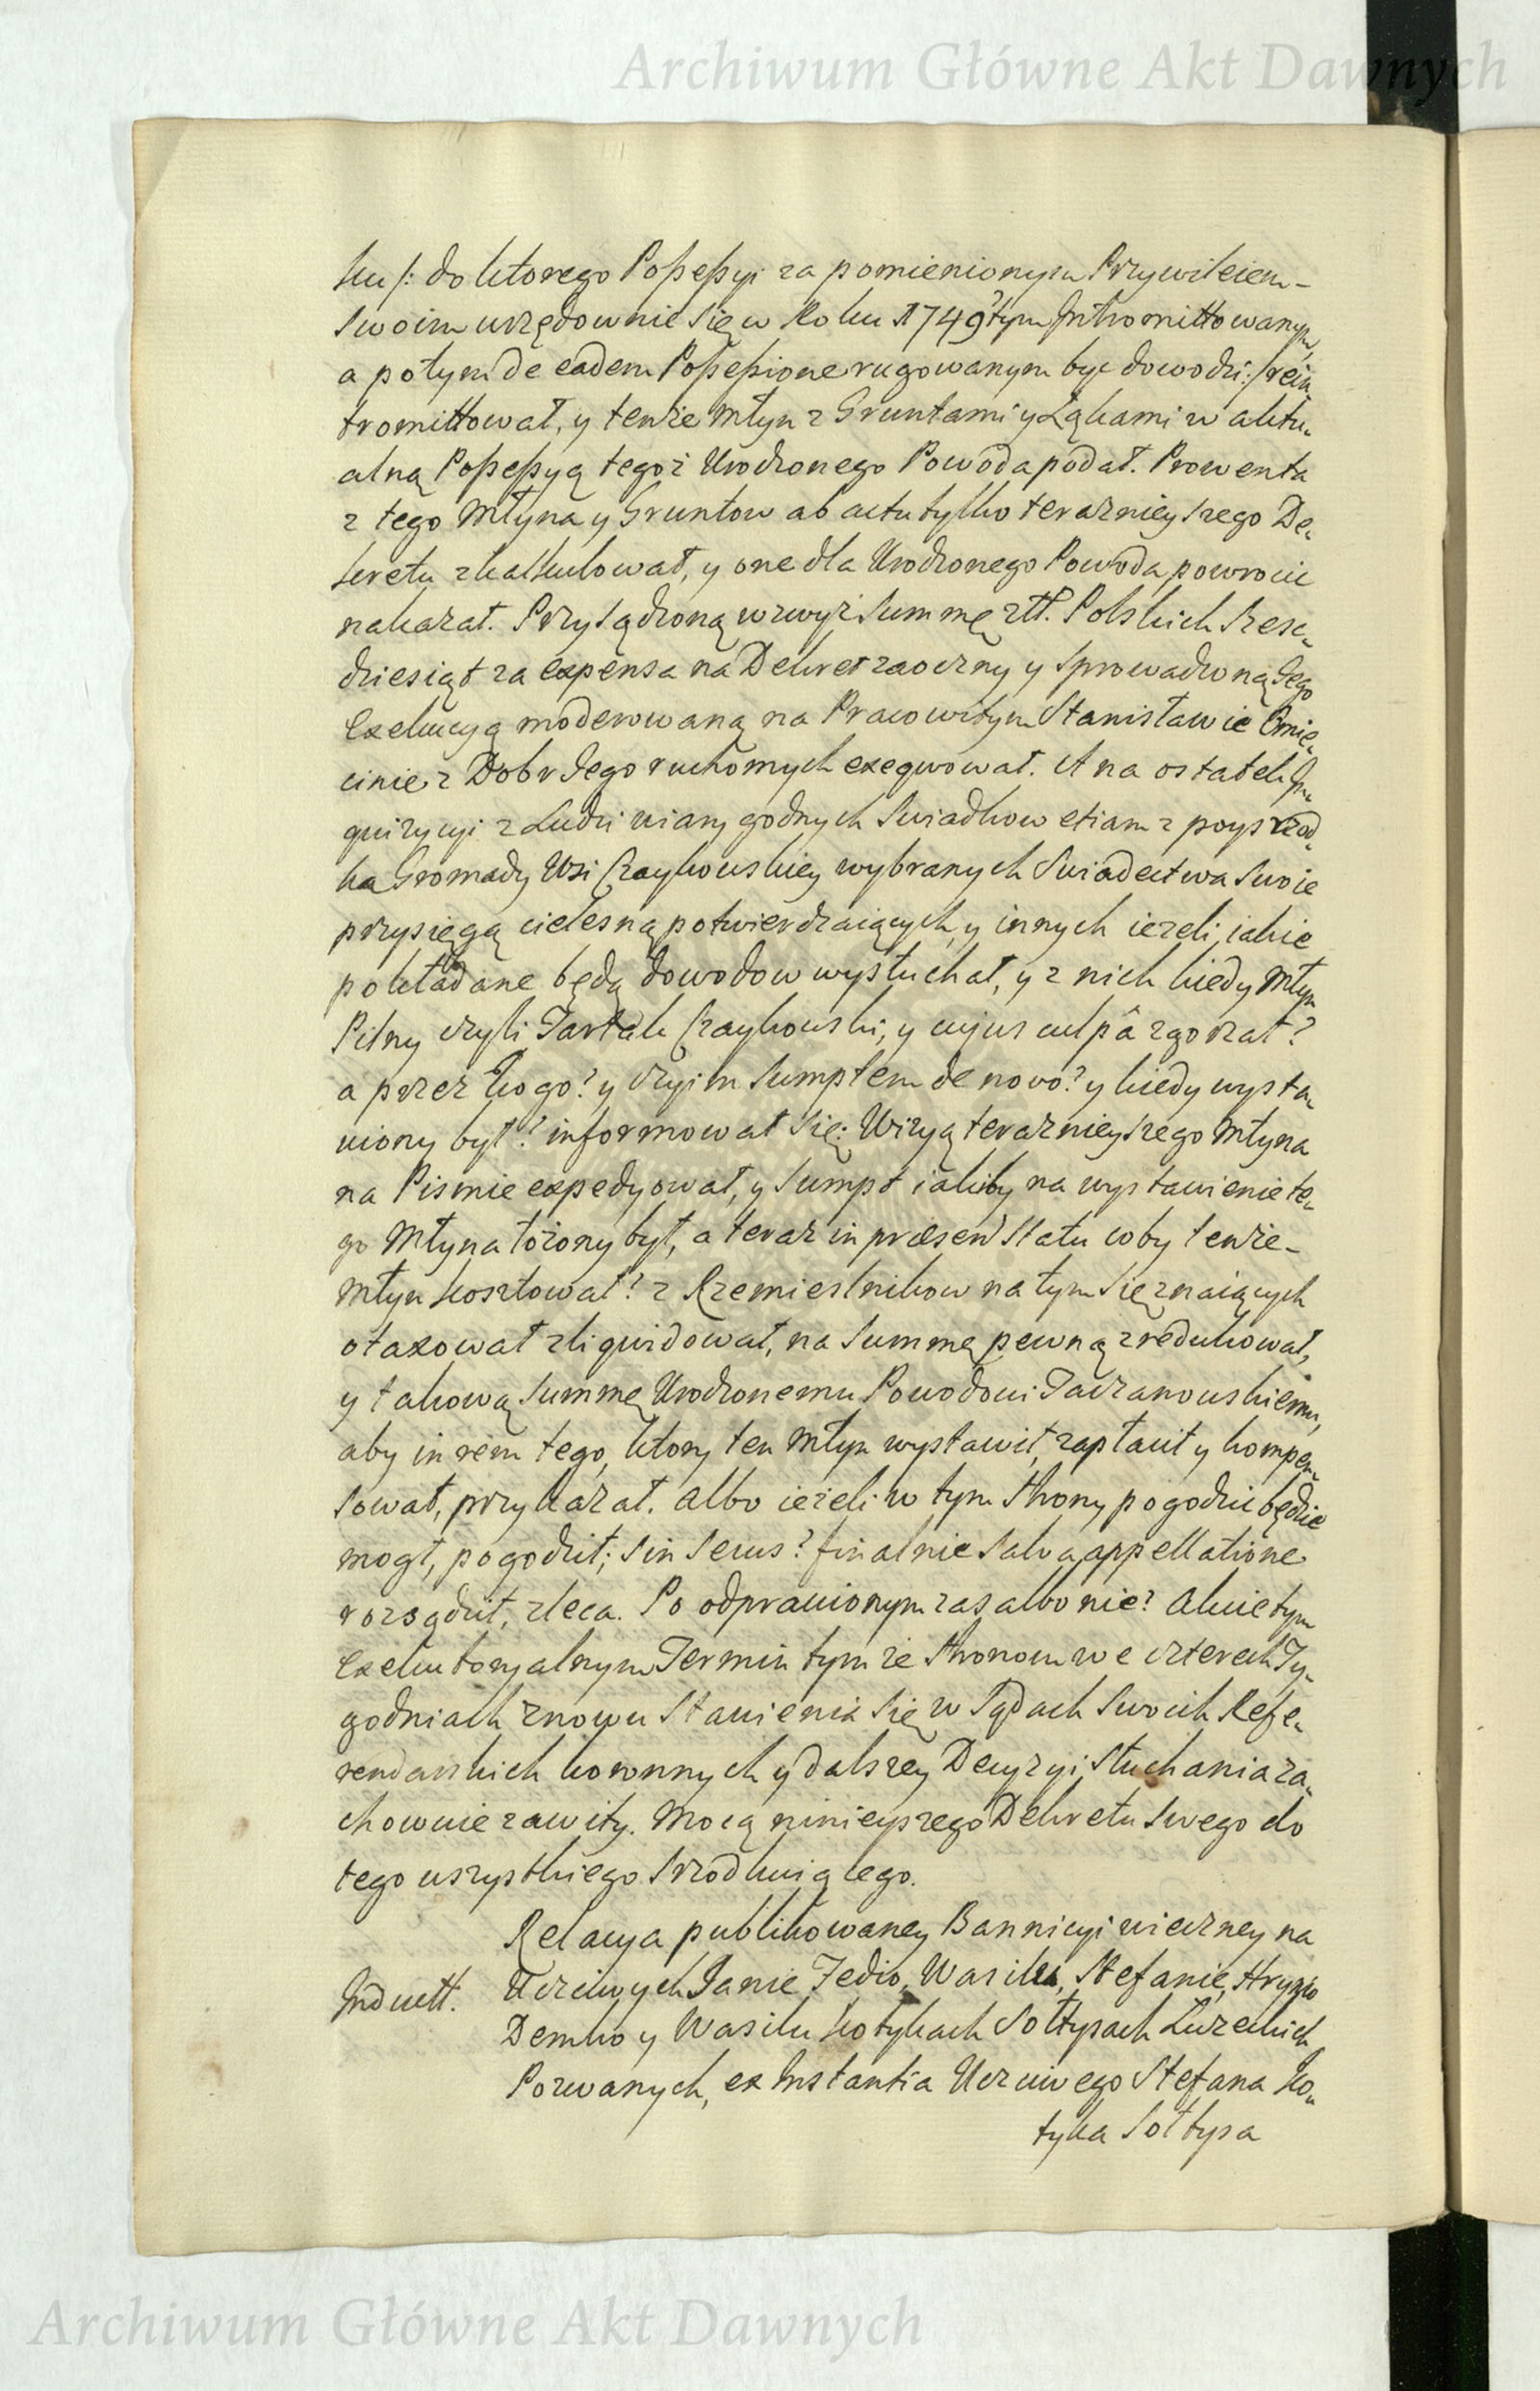 Archiwum Główne Akt Dawnych
ku /: do ktorego Possessyi za pomienionym Przywileiem
Swoim urzędownie się w Roku 1749tym Intromittowanym,
a potym de eadem Possessione rugowanym być dowodzi :/ rein„
tromittował, y tenże Młyn z Gruntami y Łąkami w aktu„
alną Possessyą tegoż Urodzonego Powoda podał. Prowenta
z tego Młyna y Gruntow ab actu tylko teraznieyszego De„
kretu zkalkulował, y one dla Urodzonego Powoda powrocic
nakazał. Przysądzoną wzwyż Summę złł. Polskich Szesc„
dziesiąt za expensa na Dekret zaoczny y sprowadzoną Jego
Exekucyą moderowaną na Pracowitym Stanisławie Cmie„
cinie z Dobr Jego ruchomych exeqwował. A na ostatek In„
quizycyi z Ludzi wiary godnych Swiadkow etiam z poysrzod„
ka Gromady Wsi Czaykowskiey wybranych Swiadectwa Swoie
przysięgą cielesną potwierdzaiących, y innych ieżeli iakie
pokładane będą dowodow wysłuchał, y z nich kiedy Młyn
Pilny czyli Tartak Czaykowski, y cujus culpâ zgorzał?
a przez kogo? y czyim Sumptem de novo? y kiedy wysta„
wiony był? informował się: Wizyą teraznieyszego Młyna
na Pismie expedyował, y Sumpt iakiby na wystawienie te„
go Młyna łożony był, a teraz in præsen Statu coby tenże
Młyn kosztował? z Rzemieslnikow na tym się znaiących
otaxował zliquidował, na Summę pewną zredukował,
y takową Summę Urodzonemu Powodowi Taczanowskiemu,
aby in rem tego, ktory ten Młyn wystawił, zapłacił y kompen„
sował, przykazał. Albo ieżeli w tym Strony pogodzic będzie
mogł, pogodził; sin secus? finalnie salva appellatione
rozsądził, zleca. Po odprawionym zas albo nie? Akcie tym
Exekutoryalnym Termin tymże Stronom we czterech Ty„
godniach znowu Stawienia się w Sądach Swoich Refe„
rendarskich koronnych y dalszey Decyzyi słuchania za„
chowuie zawity. Mocą ninieyszego Dekretu Swego do
tego wszystkiego srzodkuiącego.
Relacya publikowaney Bannicyi wieczney na
Indukt. Uczciwych Janie, Fedio, Wasilu, Stefanie, Hryńko
Demko y Wasilu Kotykach Sołtysach Łużeckich
Pozwanych, ex Instantia Uczciwego Stefana Ko„
tyka Sołtysa
Archiwum Główne Akt Dawnych